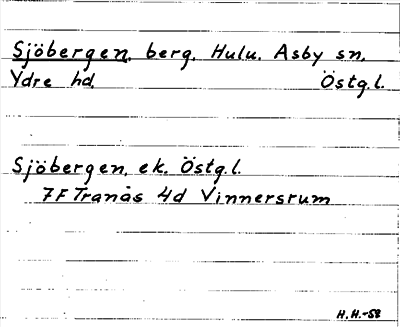 Sjöbergen, berg, Hulu, Asby sn.
Ydre hd. Östg.l.
Sjöbergen, ek. Östg.l.
7F Tranås 4d Vinnersrum
H.H.-58